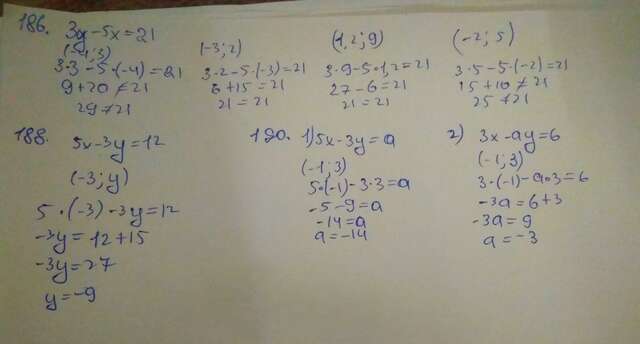 186. 3y-5x=21
(-4; 3)
3·3-5·(-4)=21
9+20≠21
29≠21
(-3; 2)
3·2-5·(-3)=21
6+15=21
21=21
(1,2; 9)
3·9-5·1,2=21
27-6=21
21=21
(-2; 5)
3·5-5·(-2)=21
15+10≠21
25≠21
188. 5x-3y=12
(-3; y)
5·(-3)-3y=12
-3y=12+15
-3y=27
y=-9
190. 1) 5x-3y=a
(-1; 3)
5·(-1)-3·3=a
-5-9=a
-14=a
a=-14
2) 3x-ay=6
(-1; 3)
3·(-1)-a·3=6
-3a=6+3
-3a=9
a=-3